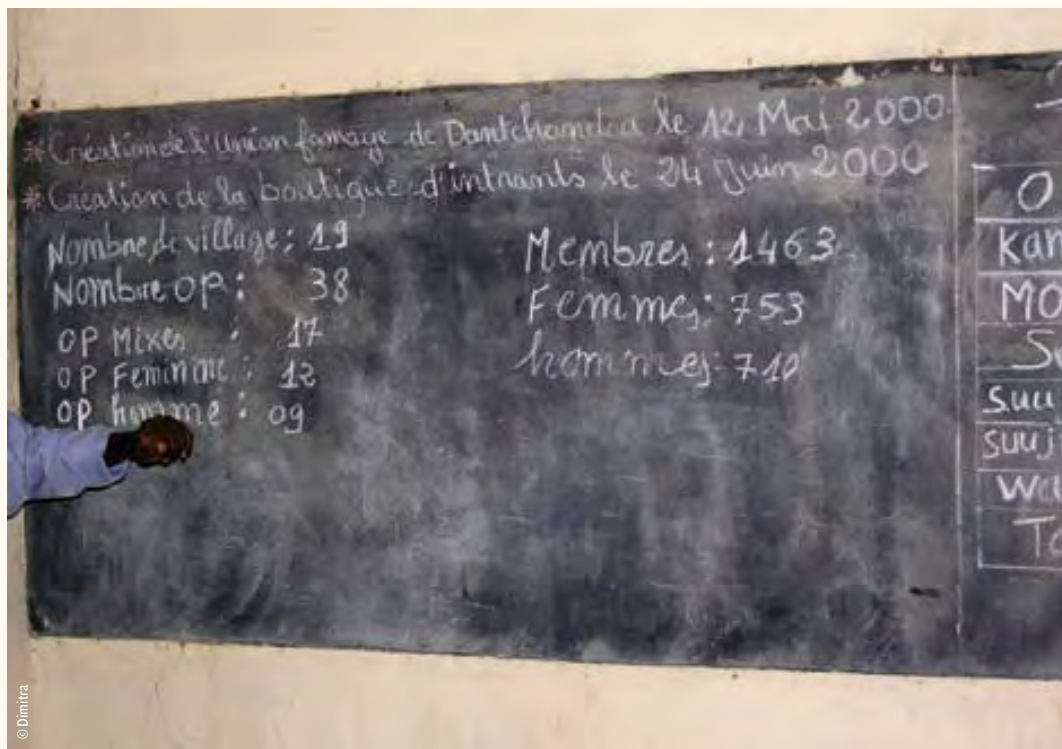 * Création de l'Union famage de Dantchandou le 12 Mai 2000
* Création de la boutique d'intrants le 24 Juin 2000
Nombre de village : 19
Nombre OP : 38
OP Mixes : 17
OP Feminine : 12
OP homme : 09
Membres : 1463
Femmes : 753
hommes : 710
O
Kan
MO
Su
Suu
Suuj
Wa
To
© Dimitra